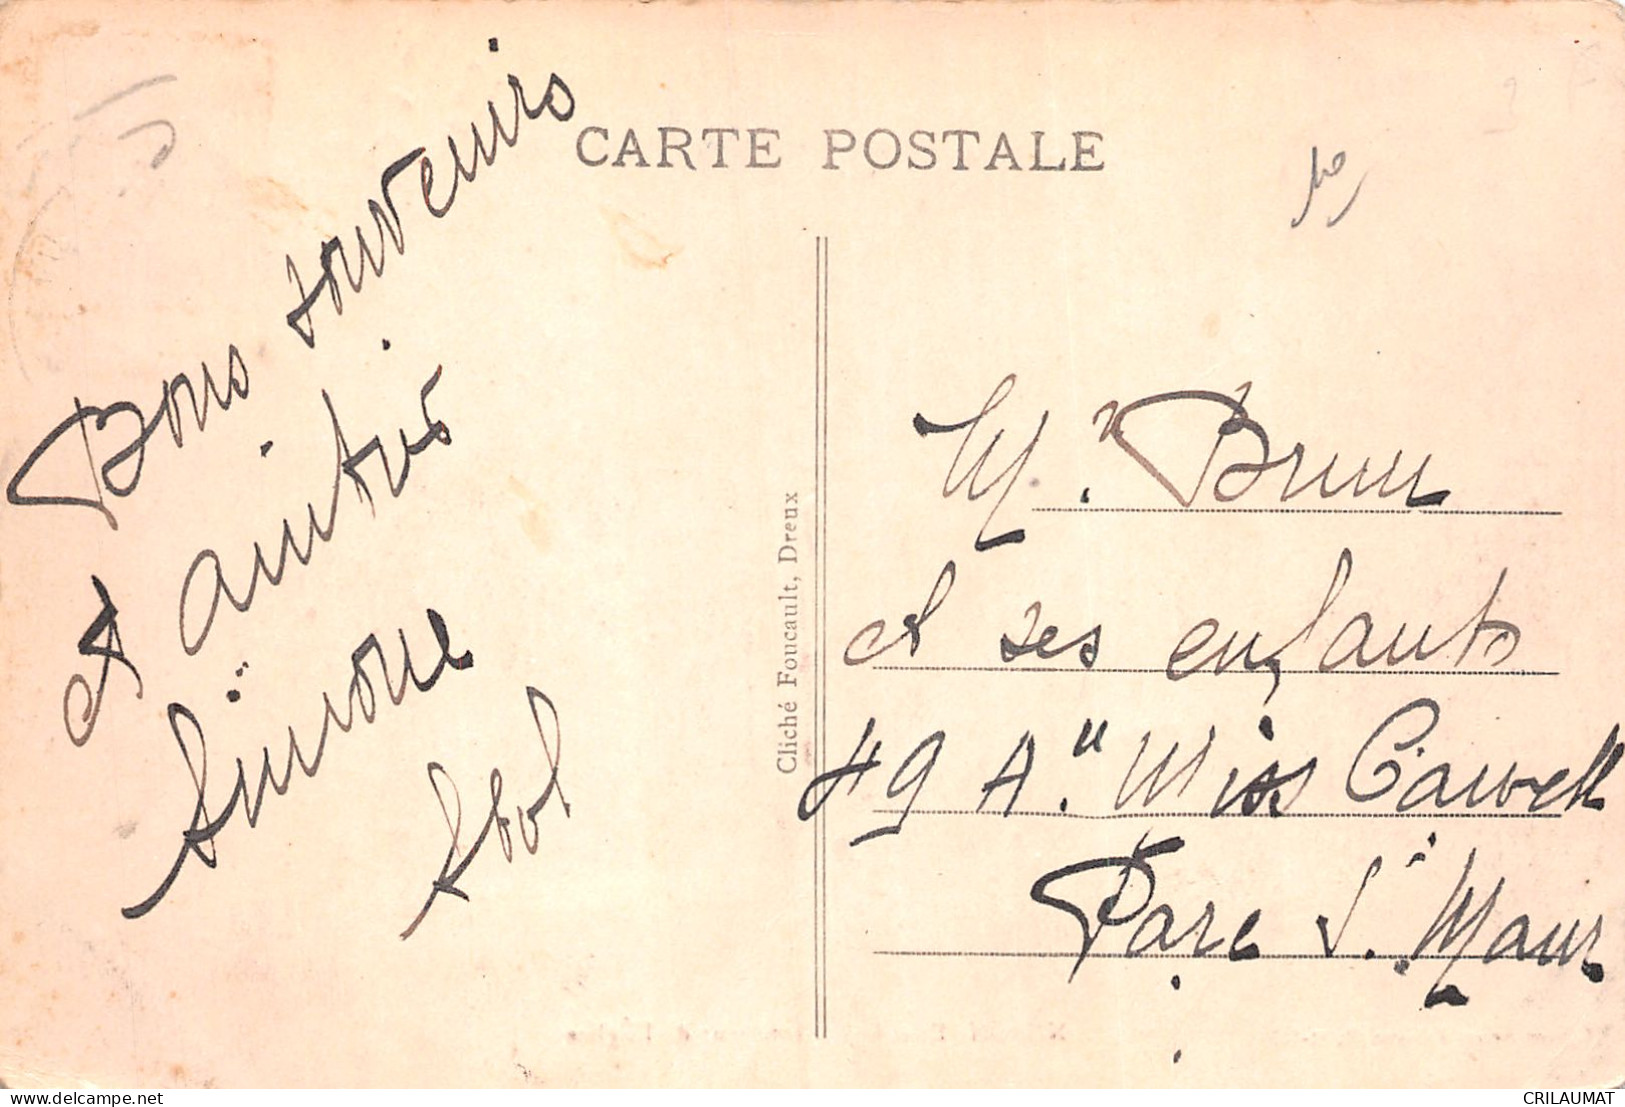 CARTE POSTALE
Bons souvenirs
et
Simone
Cliché Foucault, Dreux
Mr Brun
et ses enfants
49 A. Miss Cawell
Parc St. Maur
delcampe.net
CRILAUMAT